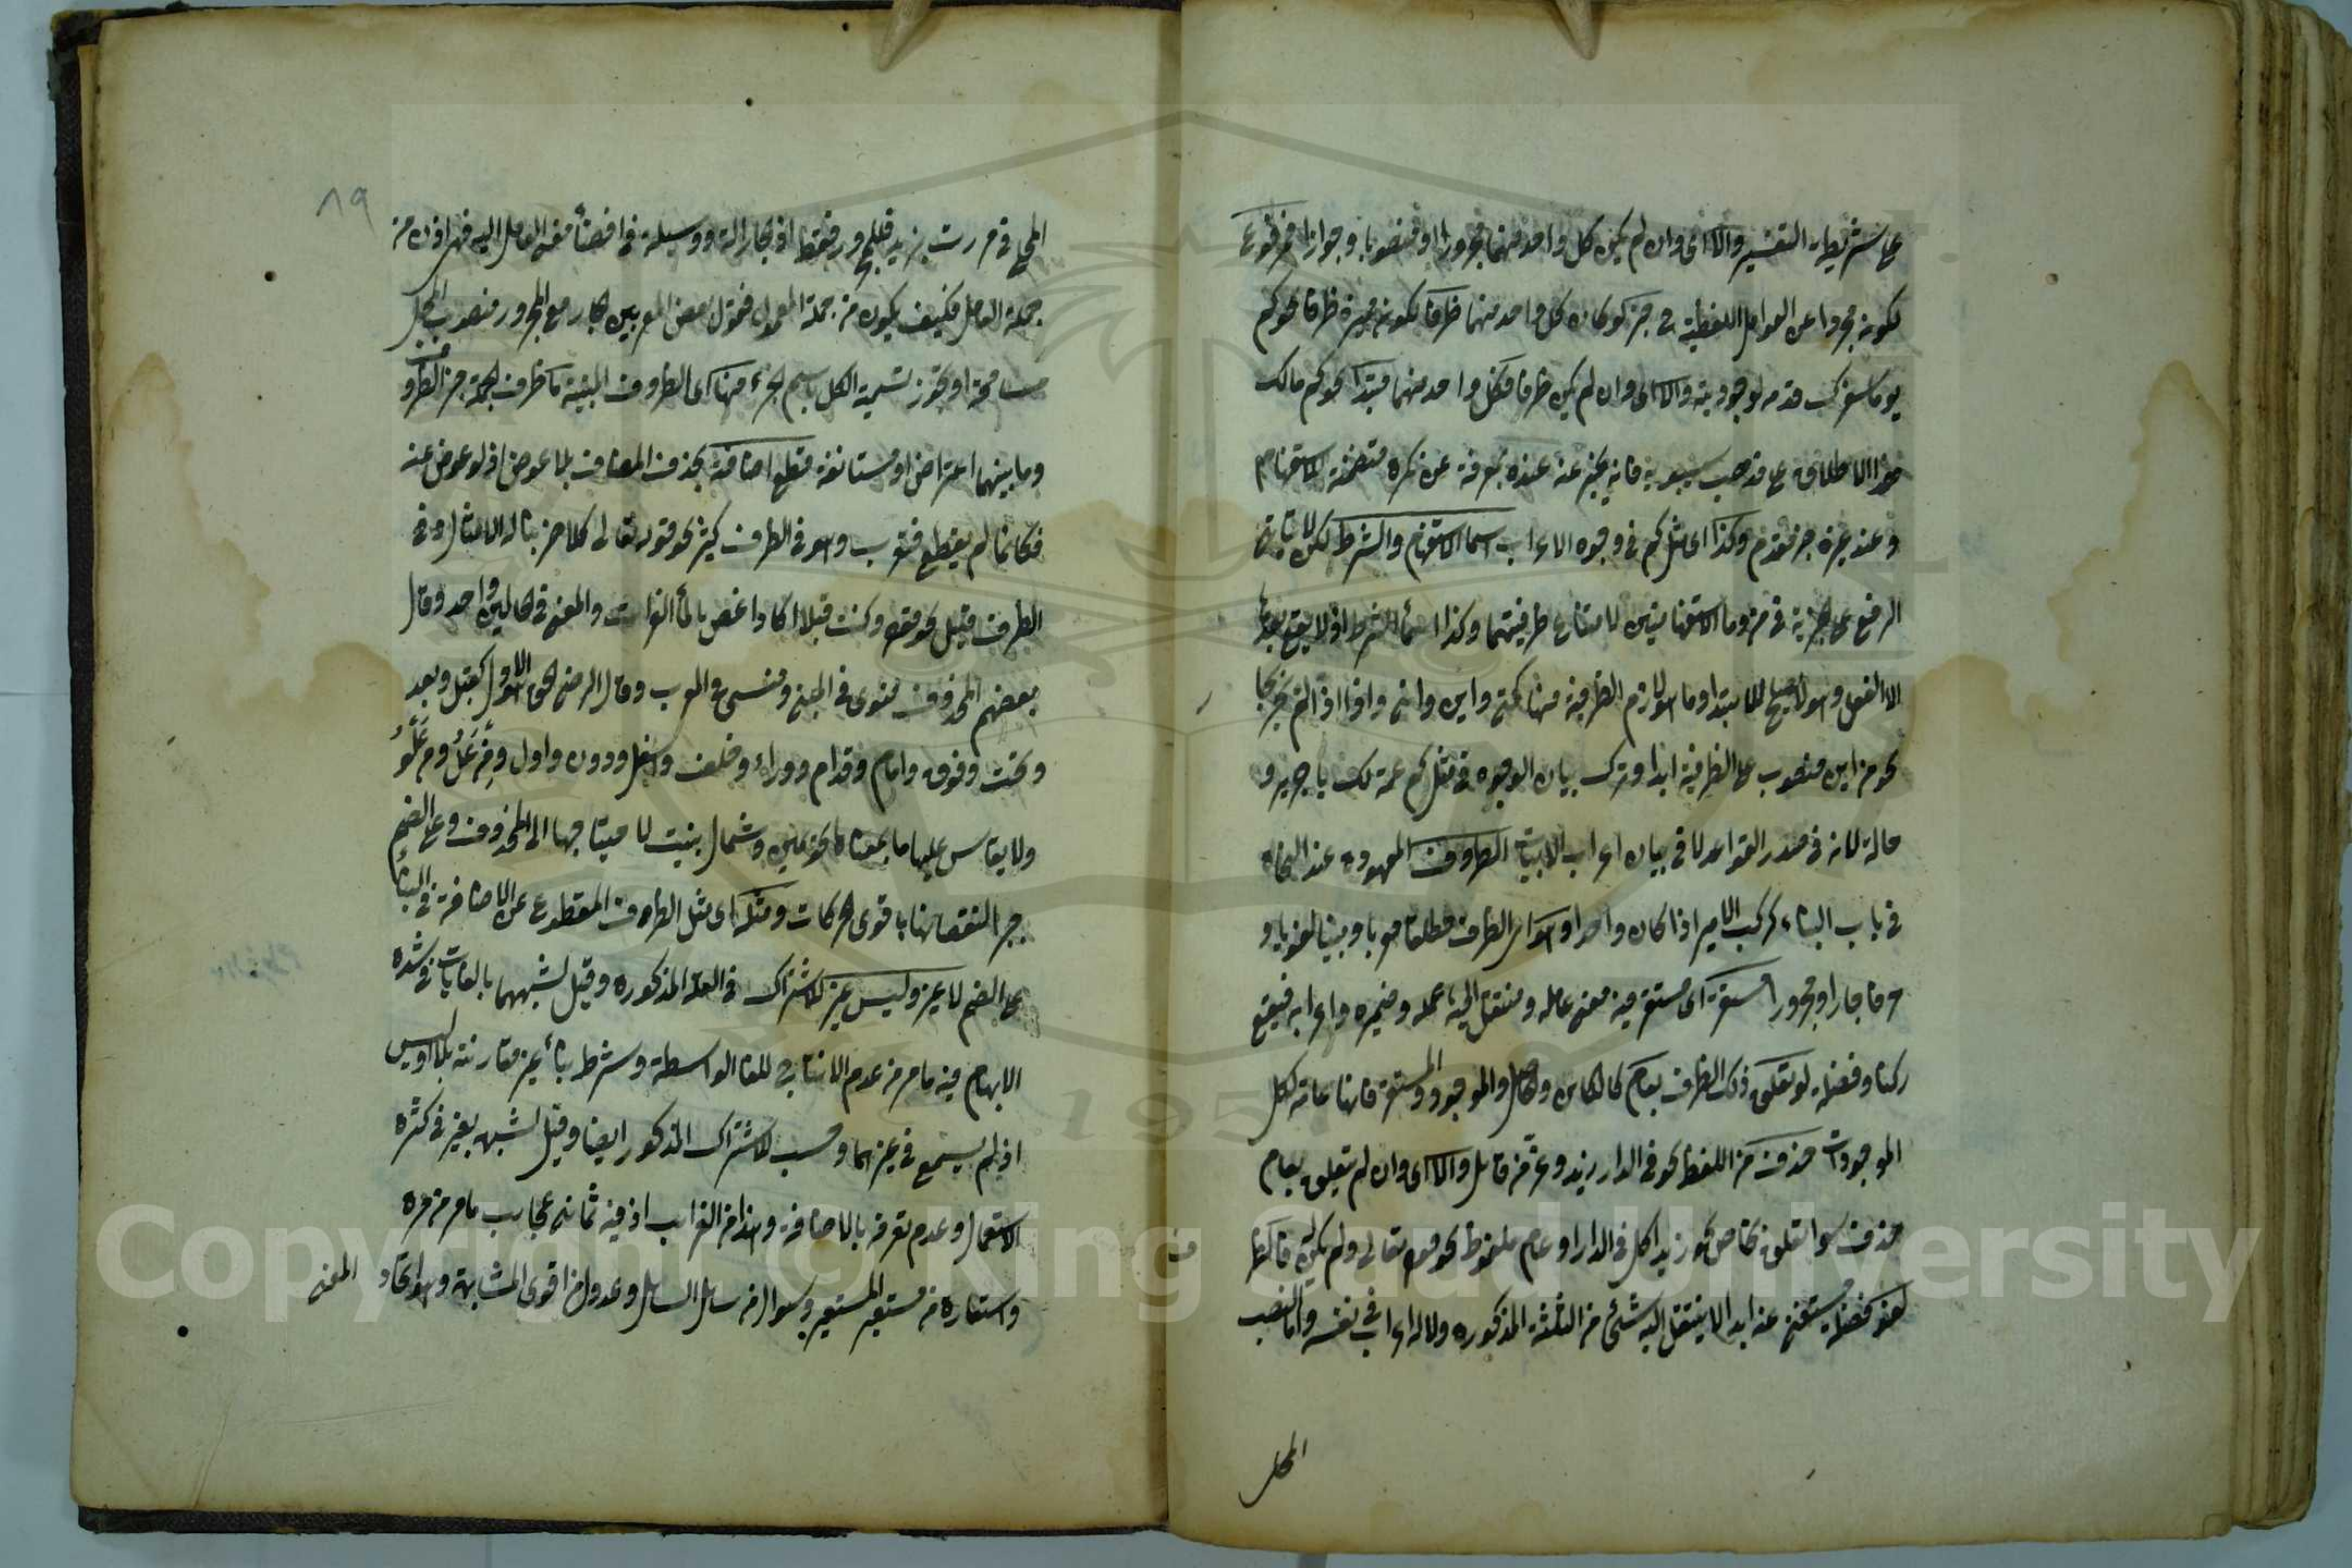 على شريطة التفسير والا اى وان لم يكن كل واحد منهما مجرورا او منصوبا وجوازا فمرفوع
لكونه مجردا عن العوامل اللفظية فخبر لو كان كل واحد منهما ظرفا لكونه مميزه ظرفا نحو كم
يوما سفرك قدم لوجوب والا اى وان لم يكن ظرفا فكل واحد منهما مبتدا نحو كم مالك
هذا الاطلاق على مذهب سيبويه فانه يخبر عنده بمعرفة عن نكره متضمنة للاستفهام
وعند غيره خبر مقدم وكذا اى مثل كم فى وجوه الاعراب اسما الاستفهام والشرط لكن لا يتاتى
الرفع على الخبرية فى من وما الاستفهاميتين لامتناع ظرفيتهما وكذا اسما الشرط اذ لا يقع بعدها
الا الفعل وهو لا يصلح للابتدا وما هو لازم الظرفية منها كمتى واين وانى واذا اذا لم ينجر بجار
نحو من اين منصوب على الظرفية ابدا وترك بيان الوجوه فى مثل كم عمة لك يا جرير و
خالة لانه فى صدر القواعد لا فى بيان اعراب الابيات الظروف المعهودة عند النحاة
فى باب البناء كركب الامير اذا كان واحدا او هو اى الظرف مطلقا معربا او مبنيا لغويا او
عرفا جارا ومجرورا مستقر اى مستقر فيه معنى عامله ومنتقل اليه عمله وضميره واعرابه فيقع
ركنا وفضلة لو تعلق ذلك الظرف بعام كالكائن والحاصل والموجود والمستقر فانها عامة لكل
الموجودات حذف من اللفظ نحو فى الدار زيد وعمن قائل والا اى وان لم يتعلق بعام
حذف سوا تعلق بخاص نحو زيد اكل فى الدار او عام ملفوظ نحو قوله تعالى ولم يكن له فالظرف
لغو كفضلة مستغنى عنه ابدا لا ينتقل اليه شئ من الثلثة المذكوره ولا له اعراب فى نفسه واما نصب
المحل
٨٩
المحل فى مررت بزيد فللمجرور فقط اذ الجار الة ووسيلة فى افضاء معنى العامل اليه فهو اذن من
جملة العامل فكيف يكون من جملة المعمول فقول بعض المعربين الجار مع المجرور منصوب المحل
مسامحة او تجوز تسمية الكل باسم الجزء منها اى الظروف المبنية ما ظرف الجملة خبر الظروف
وما بينهما اعتراض او مستانفة قطع اضافته بحذف المضاف بلا عوض اذ لو عوض عنه
فكانما لم يقطع فتعرب وهو فى الظرف كثير نحو قوله تعالى كلا ضربنا له الامثال وفى
الظرف قليل نحو قوله وكنت قبلا اكاد اغص بالماء الفرات والمعنى فى الحالين واحد وقال
بعضهم المحذوف منوى فى المبنى ومنسى فى المعرب وقال الرضى الحق الاول كقبل وبعد
وتحت وفوق وامام وقدام ووراء وخلف واسفل ودون واول ومن عل ومن علو
ولا يقاس عليها ما بمعناها نحو يمين وشمال بنيت لاحتياجها الى المحذوف وعلى الضم
جبر النقصانها باقوى الحركات ومثله اى مثل الظروف المقطوع عن الاضافة فى البناء
على الضم لا غير وليس غير للاشتراك فى العلة المذكوره وقيل لشبههما بالغايات فى شدة
الابهام فيه ما مر من عدم الانتاج للغا الواسطة وشرط بناء غير مقارنته بلا او ليس
اذ لم يسمع فى غيرهما وحسب للاشتراك المذكور ايضا وقيل لشبهه بغير فى كثرة
الاستعمال وعدم تعرفه بالاضافة وهذا من الغرايب اذ فيه ثمانى عجايب ما مر من مره
واستعارة من مستعير المستعير وسوال من سائل السائل وعدول من اقوى المشابهة وهو اتحاد المعنى